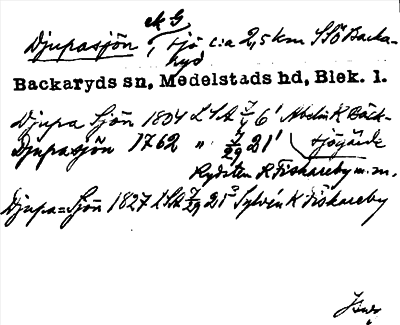 ek G
Djupasjön, sjö c:a 2,5 km SSÖ Backa-
ryd
Backaryds sn, Medelstads hd, Blek. l.
Djupa Sjön 1804 LSA 7/4 6' Abelin K Bäck-
Djupasjön 1762 " 7/29 21' sjögärde
Rydsten K Fiskareby m.m.
Djupa=Sjön 1827 LSA 7/29 21 Sylvén K Fiskareby